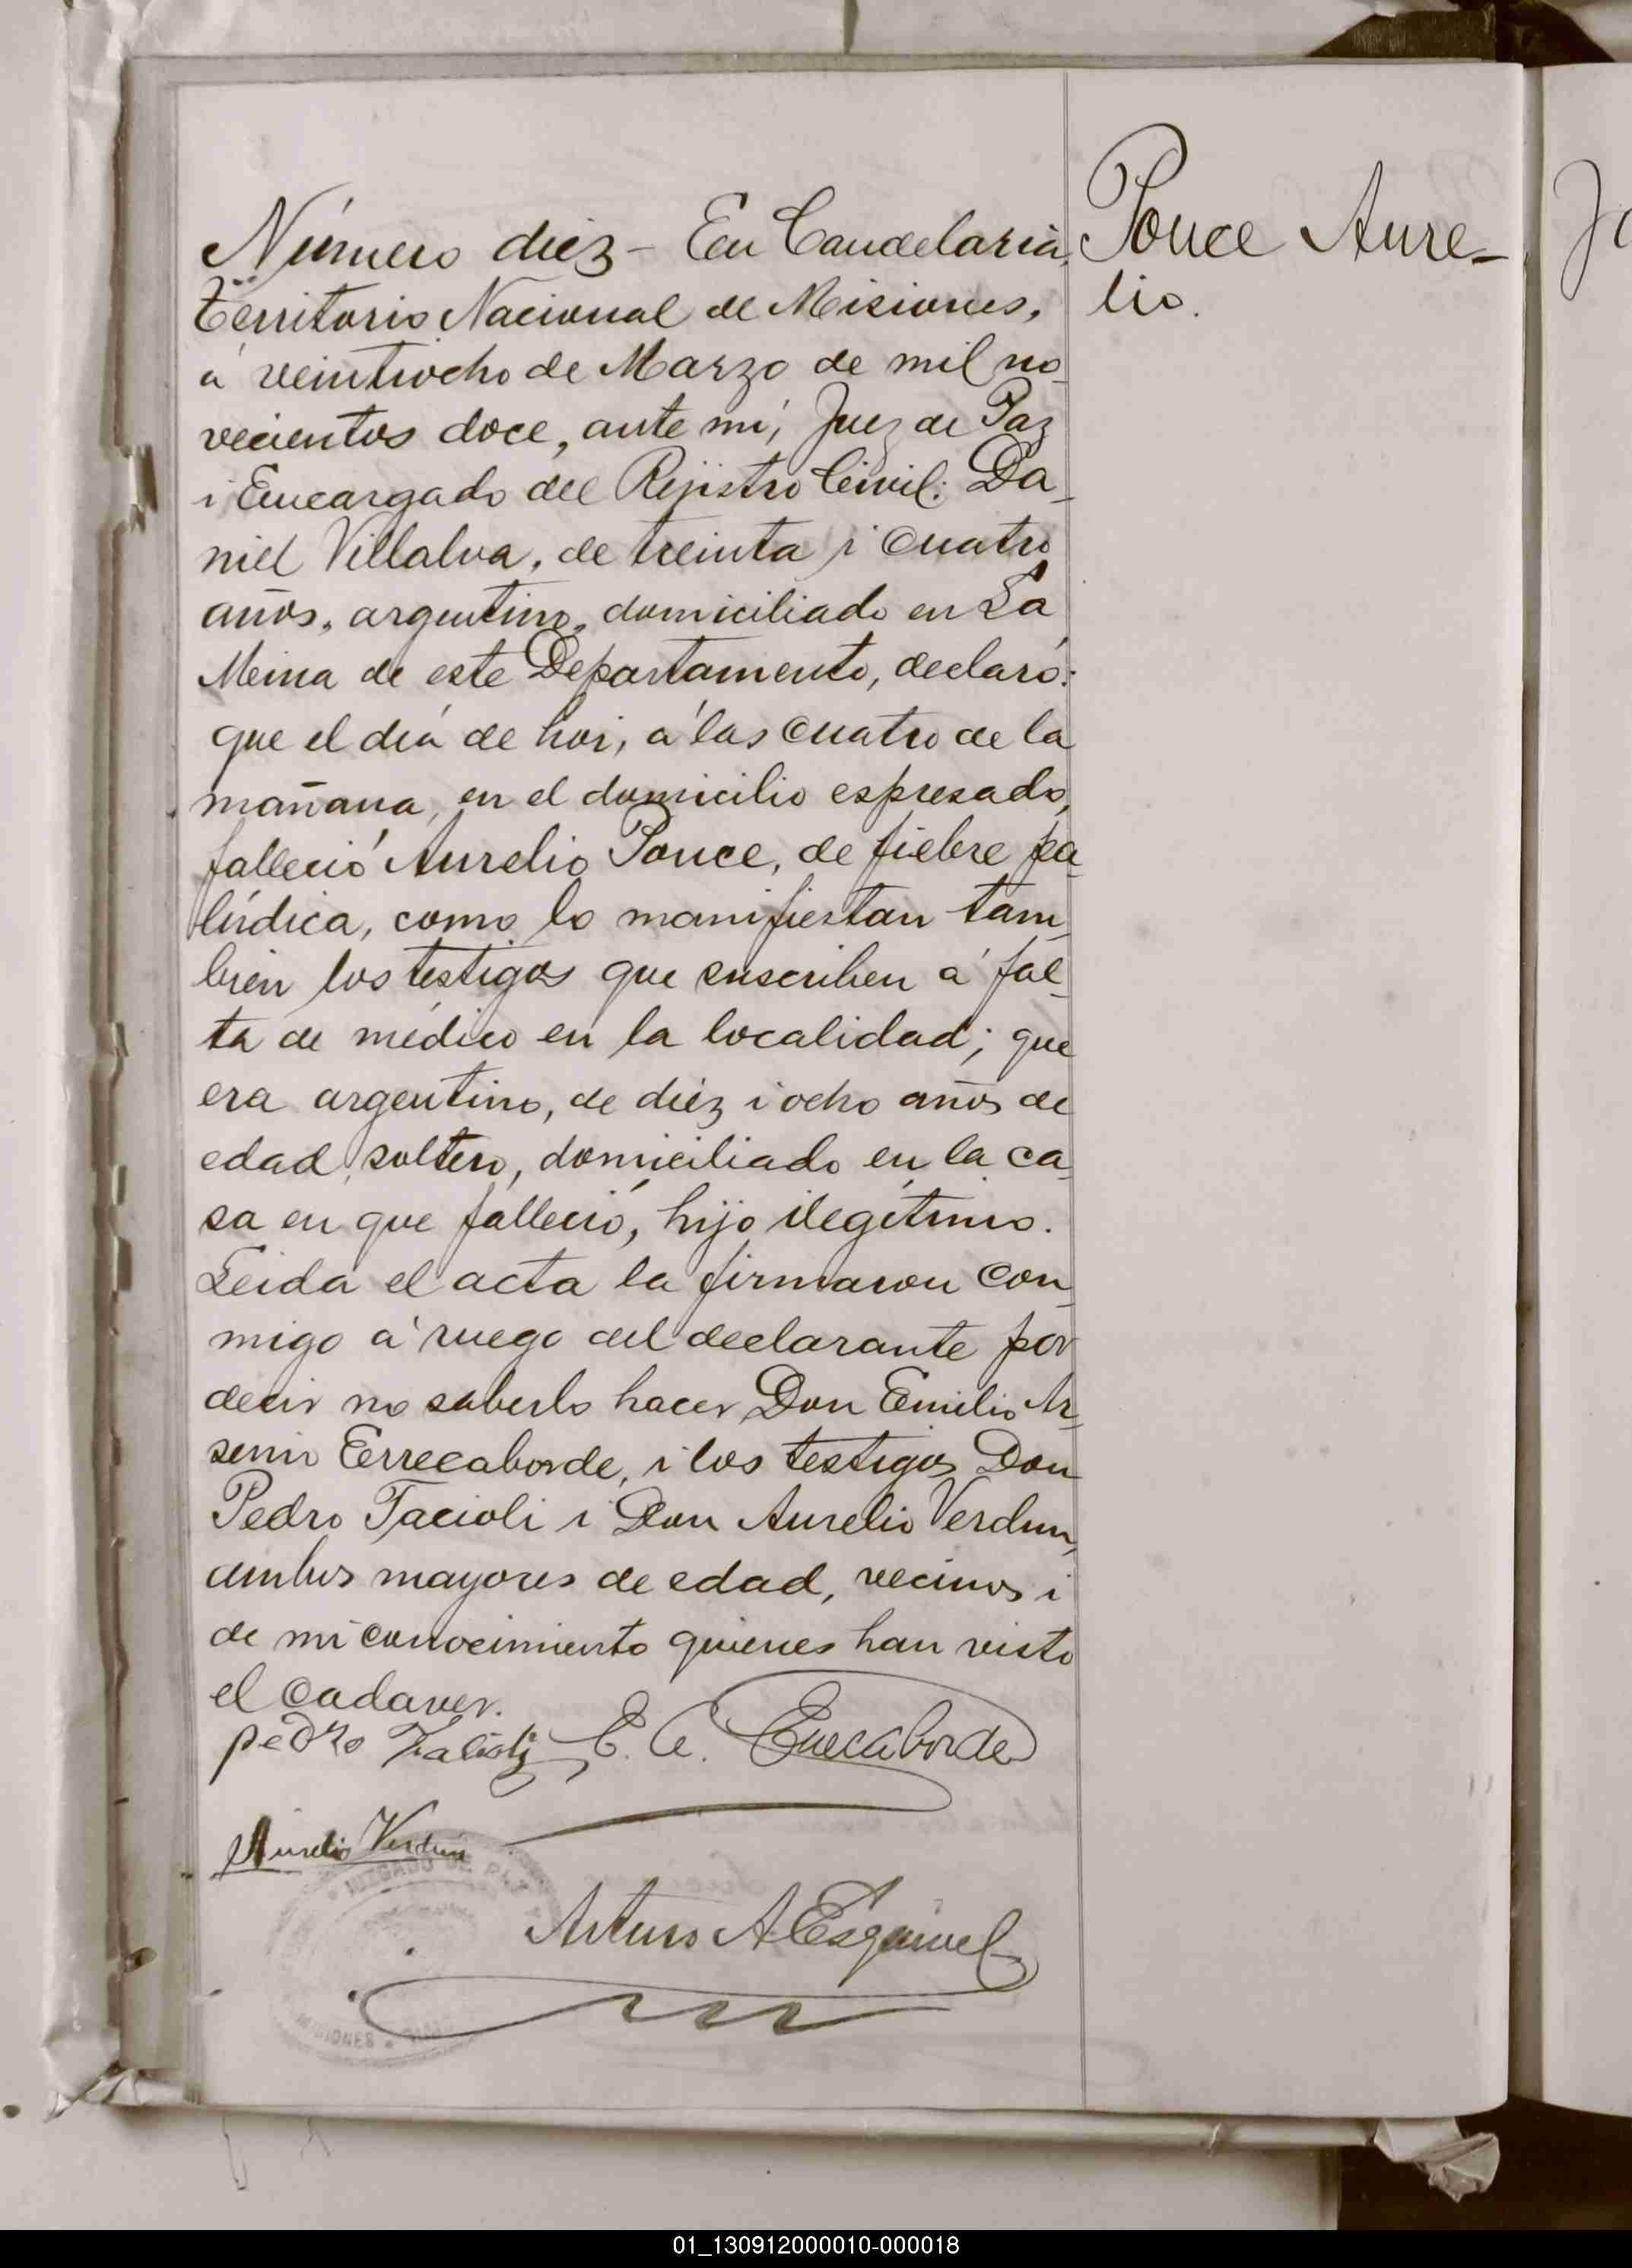 Número diez - En Candelaria,
Territorio Nacional de Misiones,
á veintiocho de Marzo de mil no_
vecientos doce, ante mí, Juez de Paz
i Encargado del Rejistro Civil: Da_
niel Villalva, de treinta i cuatro
años, argentino, domiciliado en La
Mina de este Departamento, declaró:
que el día de hoi, á las cuatro de la
mañana, en el domicilio espresado,
falleció Aurelio Ponce, de fiebre pa_
lúdica, como lo manifiestan tam_
bién los testigos que suscriben á fal_
ta de médico en la localidad; que
era argentino, de diez i ocho años de
edad, soltero, domiciliado en la ca_
sa en que falleció, hijo ilegítimo.
Leida el acta la firmaron con_
migo á ruego del declarante por
decir no saberlo hacer Don Emilio Ar_
senio Errecaborde, i los testigos Don
Pedro Tacioli i Don Aurelio Verdun,
ambos mayores de edad, vecinos i
de mi conocimiento quienes han visto
el cadaver.
pedro E. A. Errecaborde
Aurelio Verdun
JUZGADO DE PAZ
Arturo A. Esquivel
MISIONES
Ponce Aure-
lio.
01_130912000010-000018